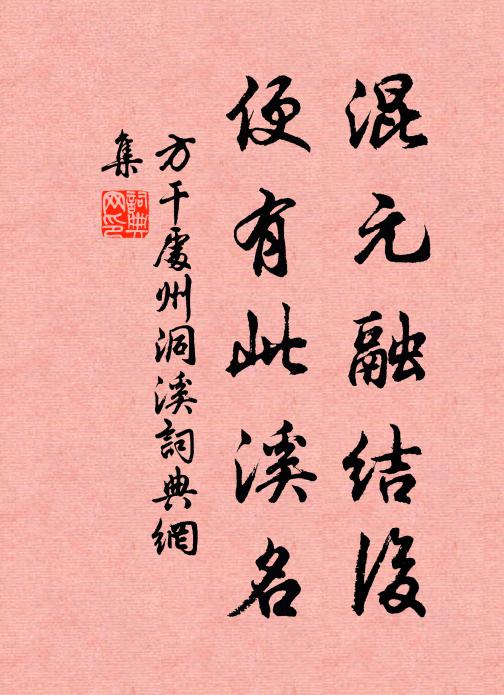 混元融結後
便有此溪名
方干處州洞溪詞典網
集
詞典
网印